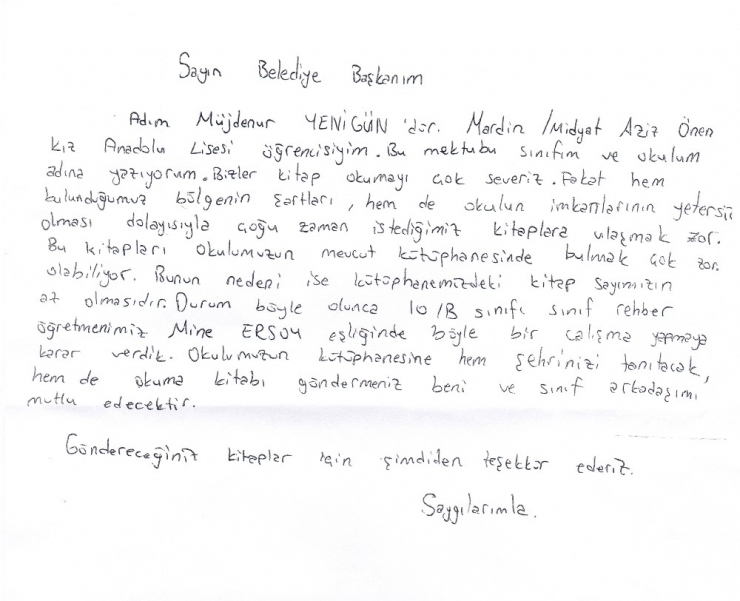 Sayın Belediye Başkanım
Adım Müjdenur YENİGÜN'dür. Mardin /Midyat Aziz Önen
kız Anadolu Lisesi öğrencisiyim. Bu mektubu sınıfım ve okulum
adına yazıyorum. Bizler kitap okumayı çok severiz. Fakat hem
bulunduğumuz bölgenin şartları, hem de okulun imkanlarının yetersiz
olması dolayısıyla çoğu zaman istediğimiz kitaplara ulaşmak zor.
Bu kitapları okulumuzun mevcut kütüphanesinde bulmak çok zor.
olabiliyor. Bunun nedeni ise kütüphanemizdeki kitap sayımızın
az olmasıdır. Durum böyle olunca 10/B sınıfı sınıf rehber
öğretmenimiz Mine ERSOY eşliğinde böyle bir çalışma yapmaya
karar verdik. Okulumuzun kütüphanesine hem şehrinizi tanıtacak,
hem de okuma kitabı göndermeniz beni ve sınıf arkadaşımı
mutlu edecektir.
Göndereceğiniz kitaplar için şimdiden teşekkür ederiz.
Saygılarımla.